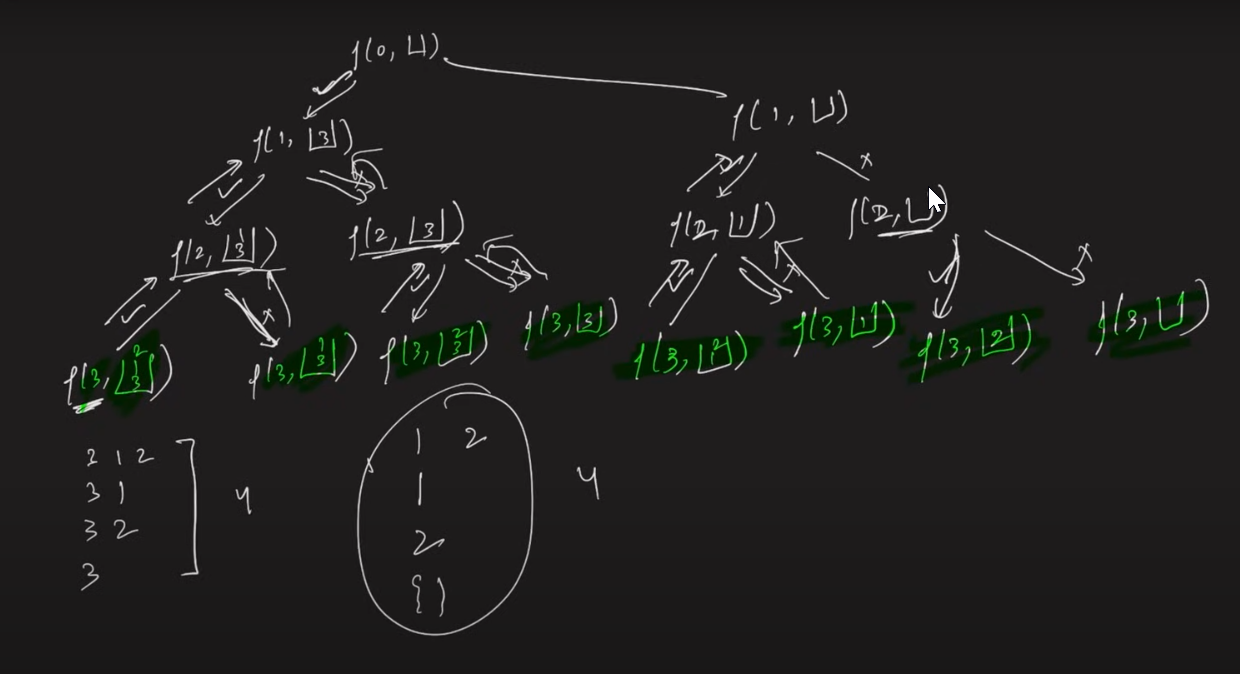 f(0, [])
f(1, [3])
f(1, [])
f(2, [3 1])
f(2, [3])
f(2, [1])
f(2, [])
f(3, [3 1 2])
f(3, [3 1])
f(3, [3 2])
f(3, [3])
f(3, [1 2])
f(3, [1])
f(3, [2])
f(3, [])
3 1 2
3 1
3 2
3
4
1 2
1
2
{ }
4